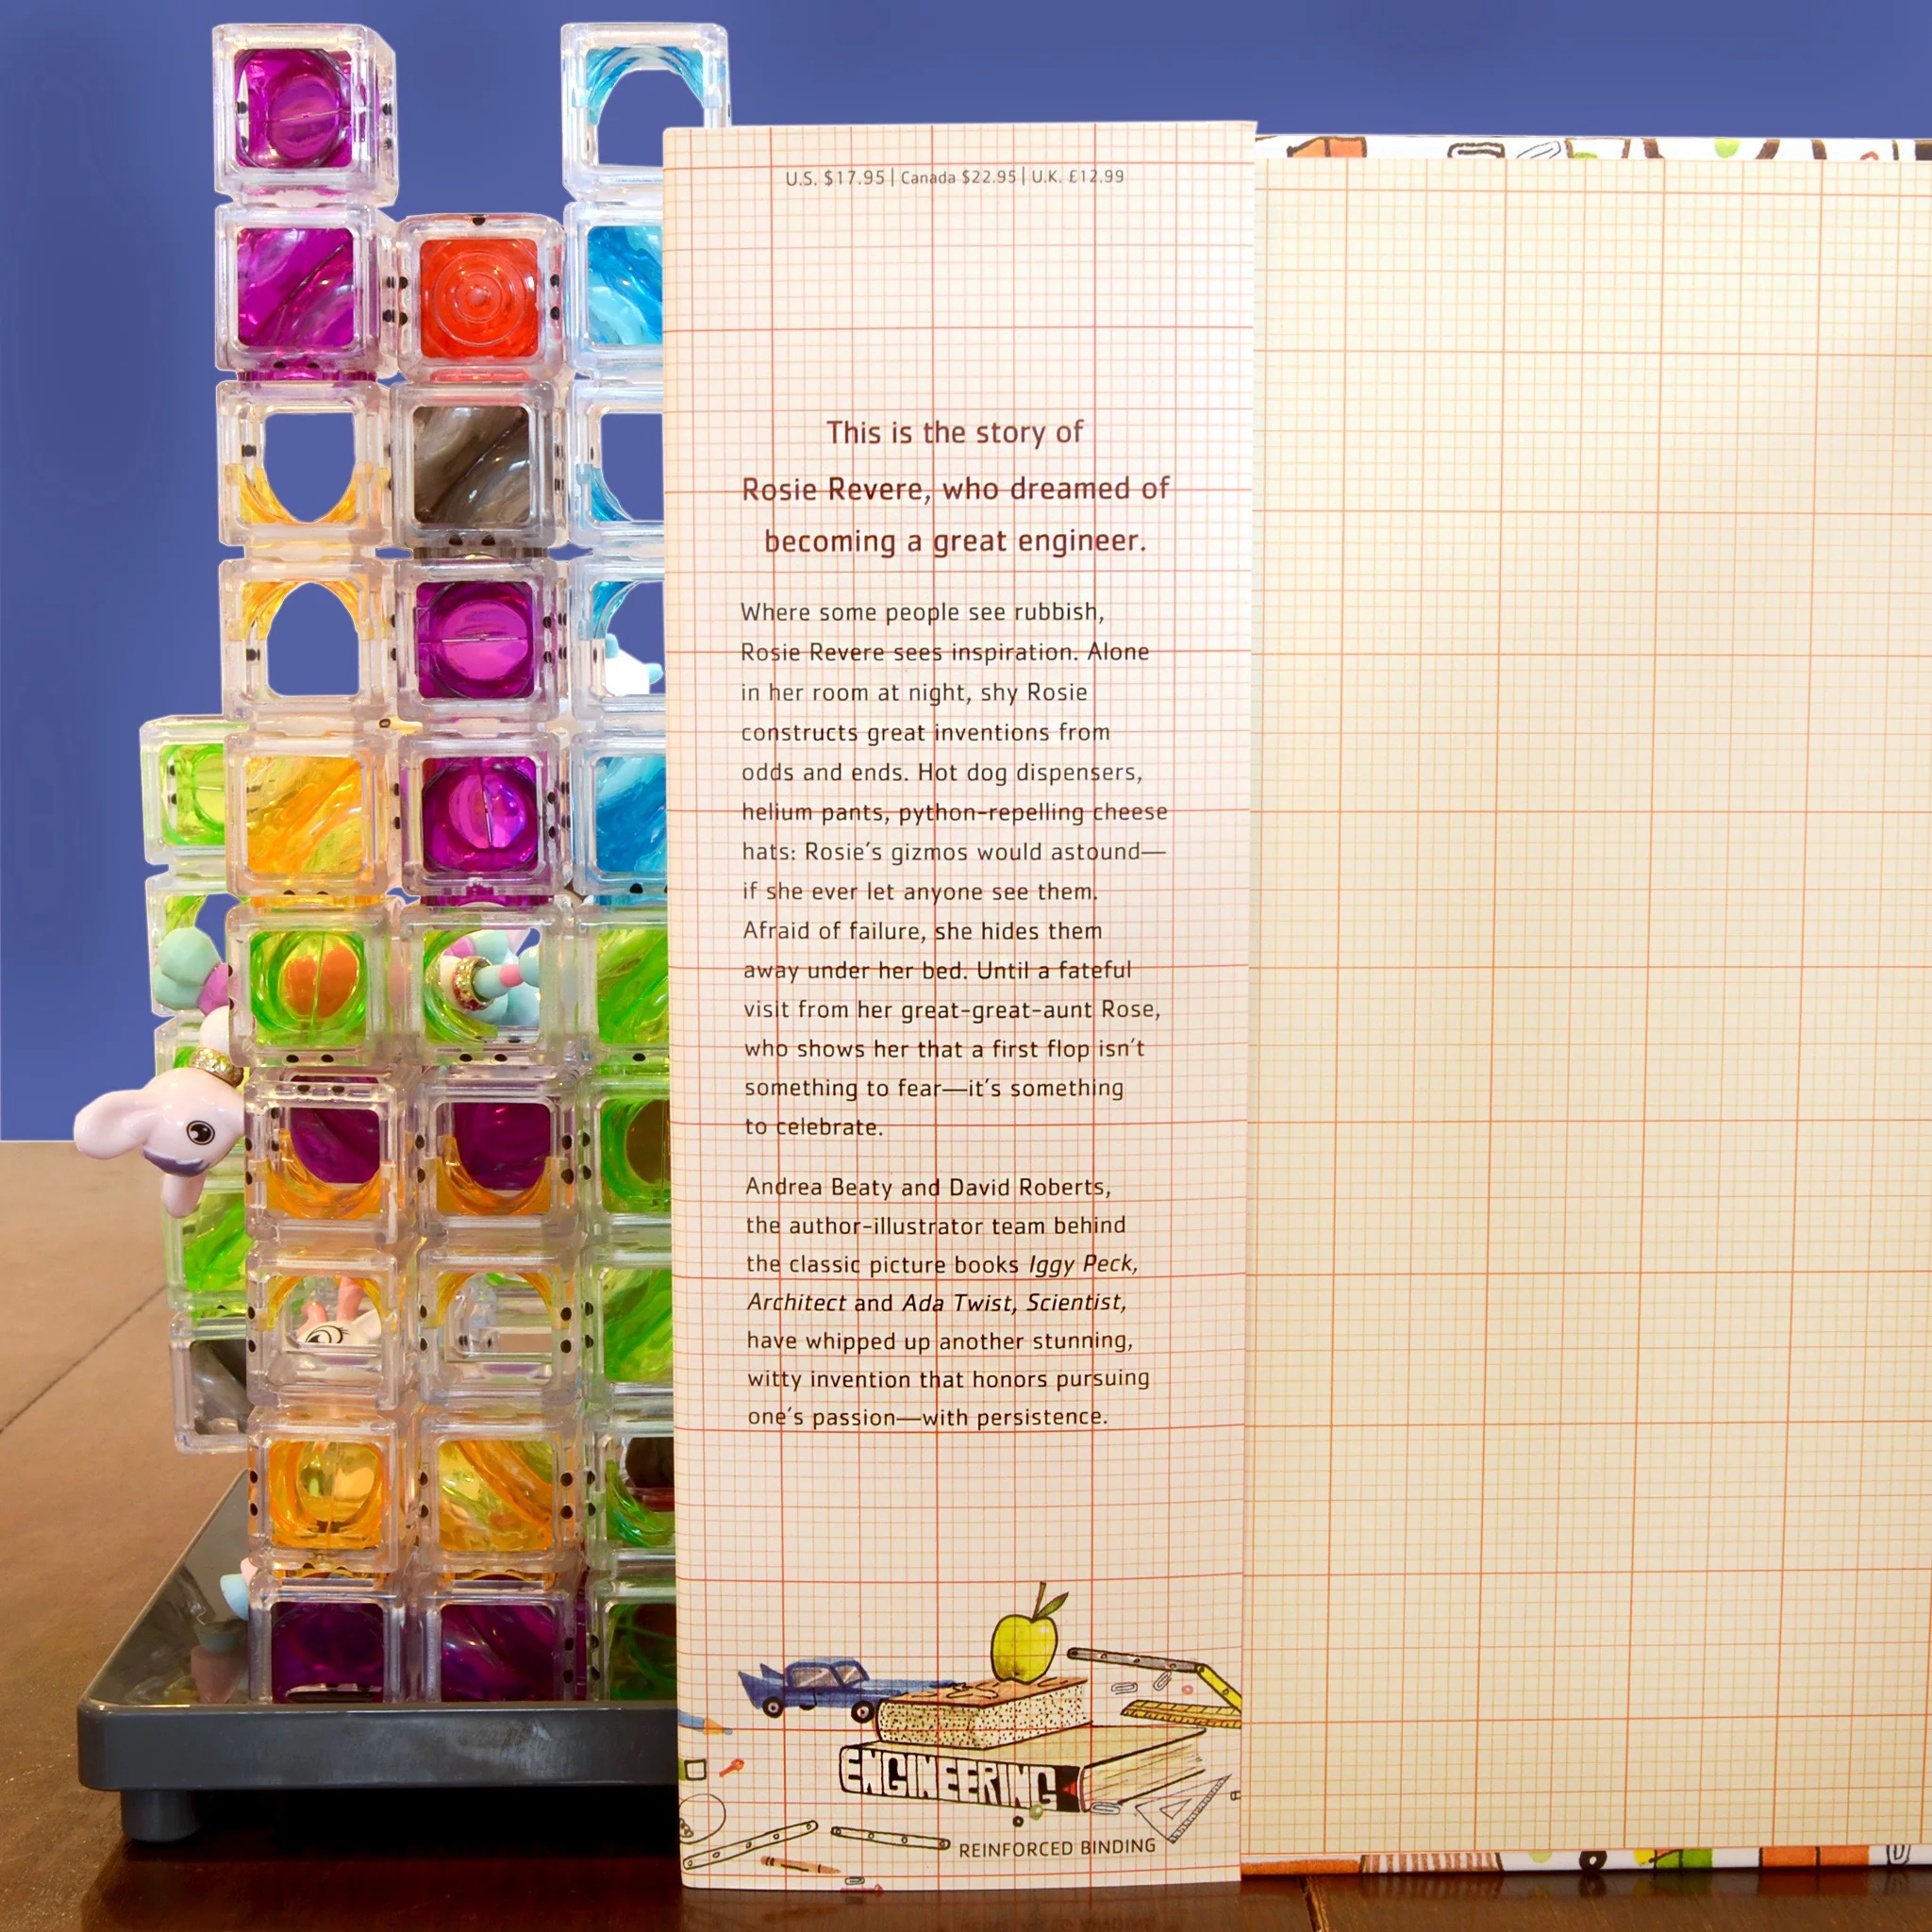 U.S. $17.95 | Canada $22.95 | U.K. £12.99
This is the story of
Rosie Revere, who dreamed of
becoming a great engineer.
Where some people see rubbish,
Rosie Revere sees inspiration. Alone
in her room at night, shy Rosie
constructs great inventions from
odds and ends. Hot dog dispensers,
helium pants, python-repelling cheese
hats: Rosie's gizmos would astound—
if she ever let anyone see them.
Afraid of failure, she hides them
away under her bed. Until a fateful
visit from her great-great-aunt Rose,
who shows her that a first flop isn't
something to fear—it's something
to celebrate.
Andrea Beaty and David Roberts,
the author-illustrator team behind
the classic picture books Iggy Peck,
Architect and Ada Twist, Scientist,
have whipped up another stunning,
witty invention that honors pursuing
one's passion—with persistence.
ENGINEERING
REINFORCED BINDING